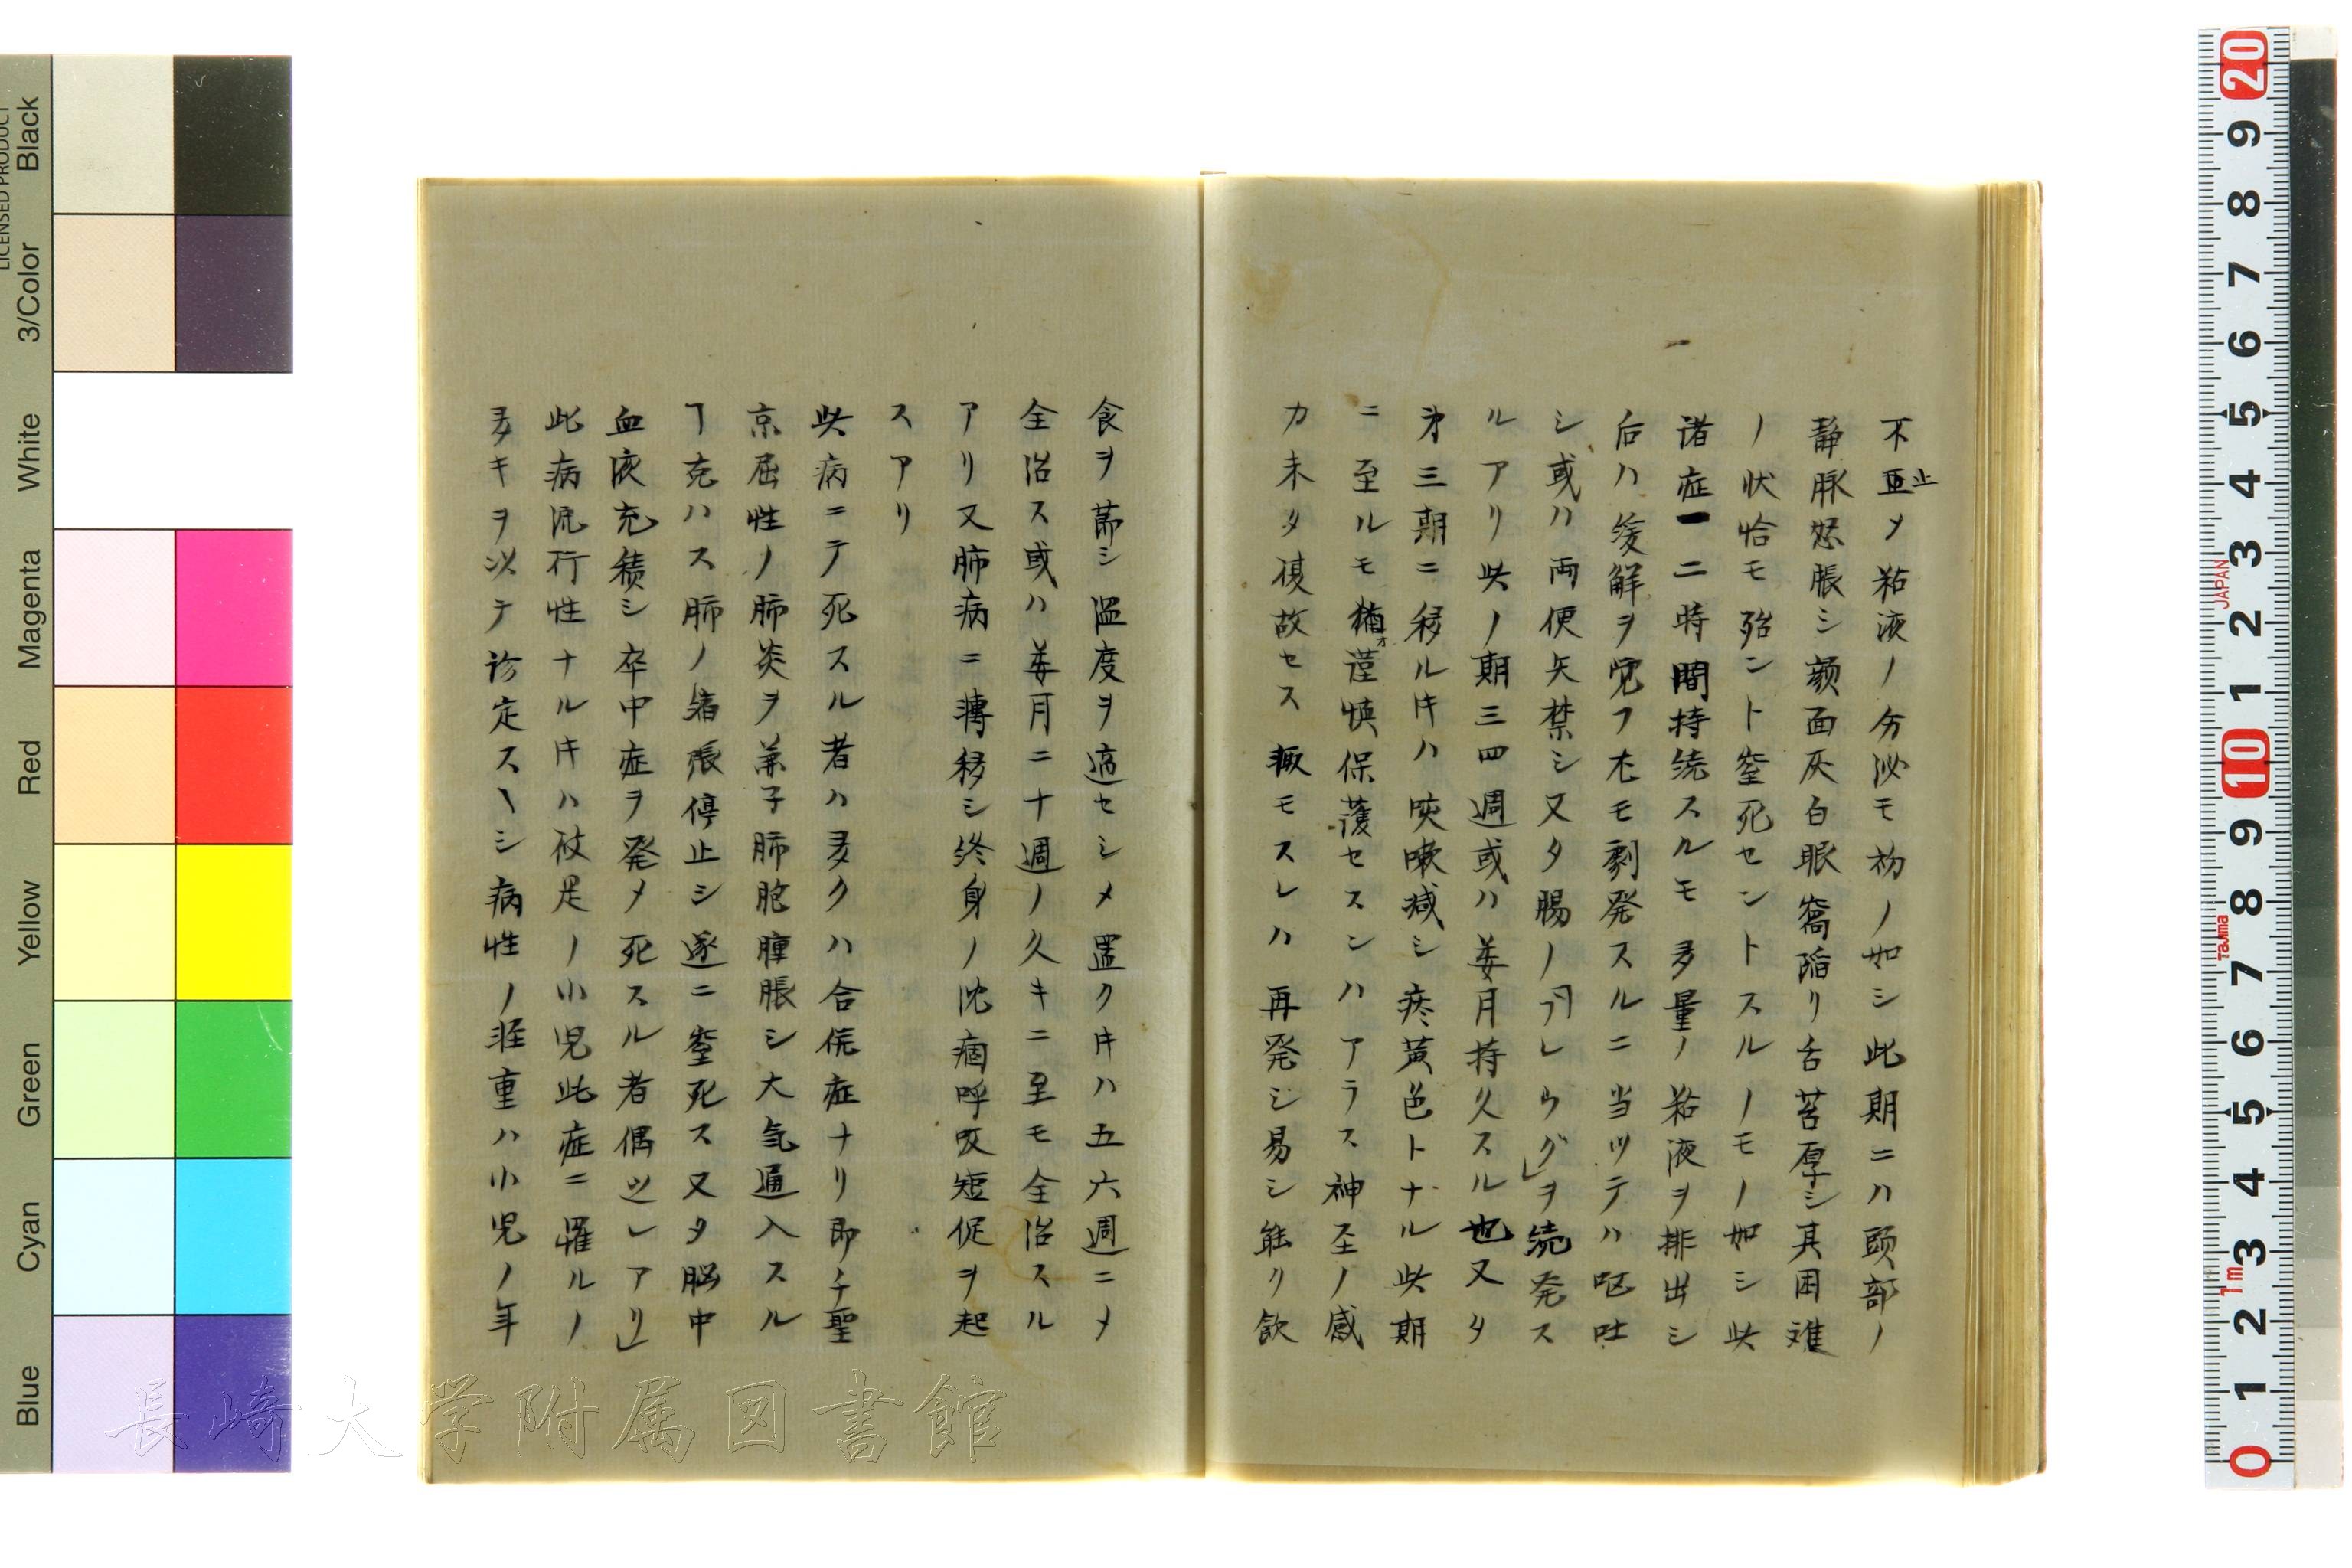 不亜止メ粘液ノ分泌モ初ノ如シ此期ニハ頭部ノ
静脉怒脹シ顔面灰白眼窩陥リ舌苔厚シ其困难
ノ状恰モ殆ント窒死セントスルノモノ如シ此
诸症一二時間持続スルモ多量ノ粘液ヲ排出シ
后ハ緩解ヲ覚フ尤モ劇発スルニ当ツテハ呕吐
シ或ハ両便失禁シ又タ腸ノ「ブレウグ」ヲ続発ス
ルアリ此ノ期三四週或ハ姜月持久スル也又タ
才三期ニ移ルキハ咳嗽減シ痰黄色トナル此期
ニ至ルモ猶オ謹慎保護セスンハアラス神圣ノ感
力未タ復故セス輙モスレハ再発シ易シ能ク飲
食ヲ節シ温度ヲ適セシメ置クキハ五六週ニメ
全治ス或ハ姜月ニ十週ノ久キニ至モ全治スル
アリ又肺病ニ轉移シ終身ノ沈痼呼吸短促ヲ起
スアリ
此病ニテ死スル者ハ多クハ合併症ナリ即チ聖
京屈性ノ肺炎ヲ兼子肺胞腫脹シ大気通入スル
ヿ克ハス肺ノ縮張停止シ遂ニ窒死ス又タ脳中
血液充積シ卒中症ヲ発メ死スル者偶之レアリ」
此病流行性ナルキハ枝足ノ小児此症ニ罹ルノ
多キヲ以テ診定スヘシ病性ノ軽重ハ小児ノ年
20 9 8 7 6 5 4 3 2 1 10 9 8 7 6 5 4 3 2 1 0
JAPAN
Tajima
1m
LICENSED PRODUCT
Black
3/Color
White
Magenta
Red
Yellow
Green
Cyan
Blue
長崎大学附属図書館